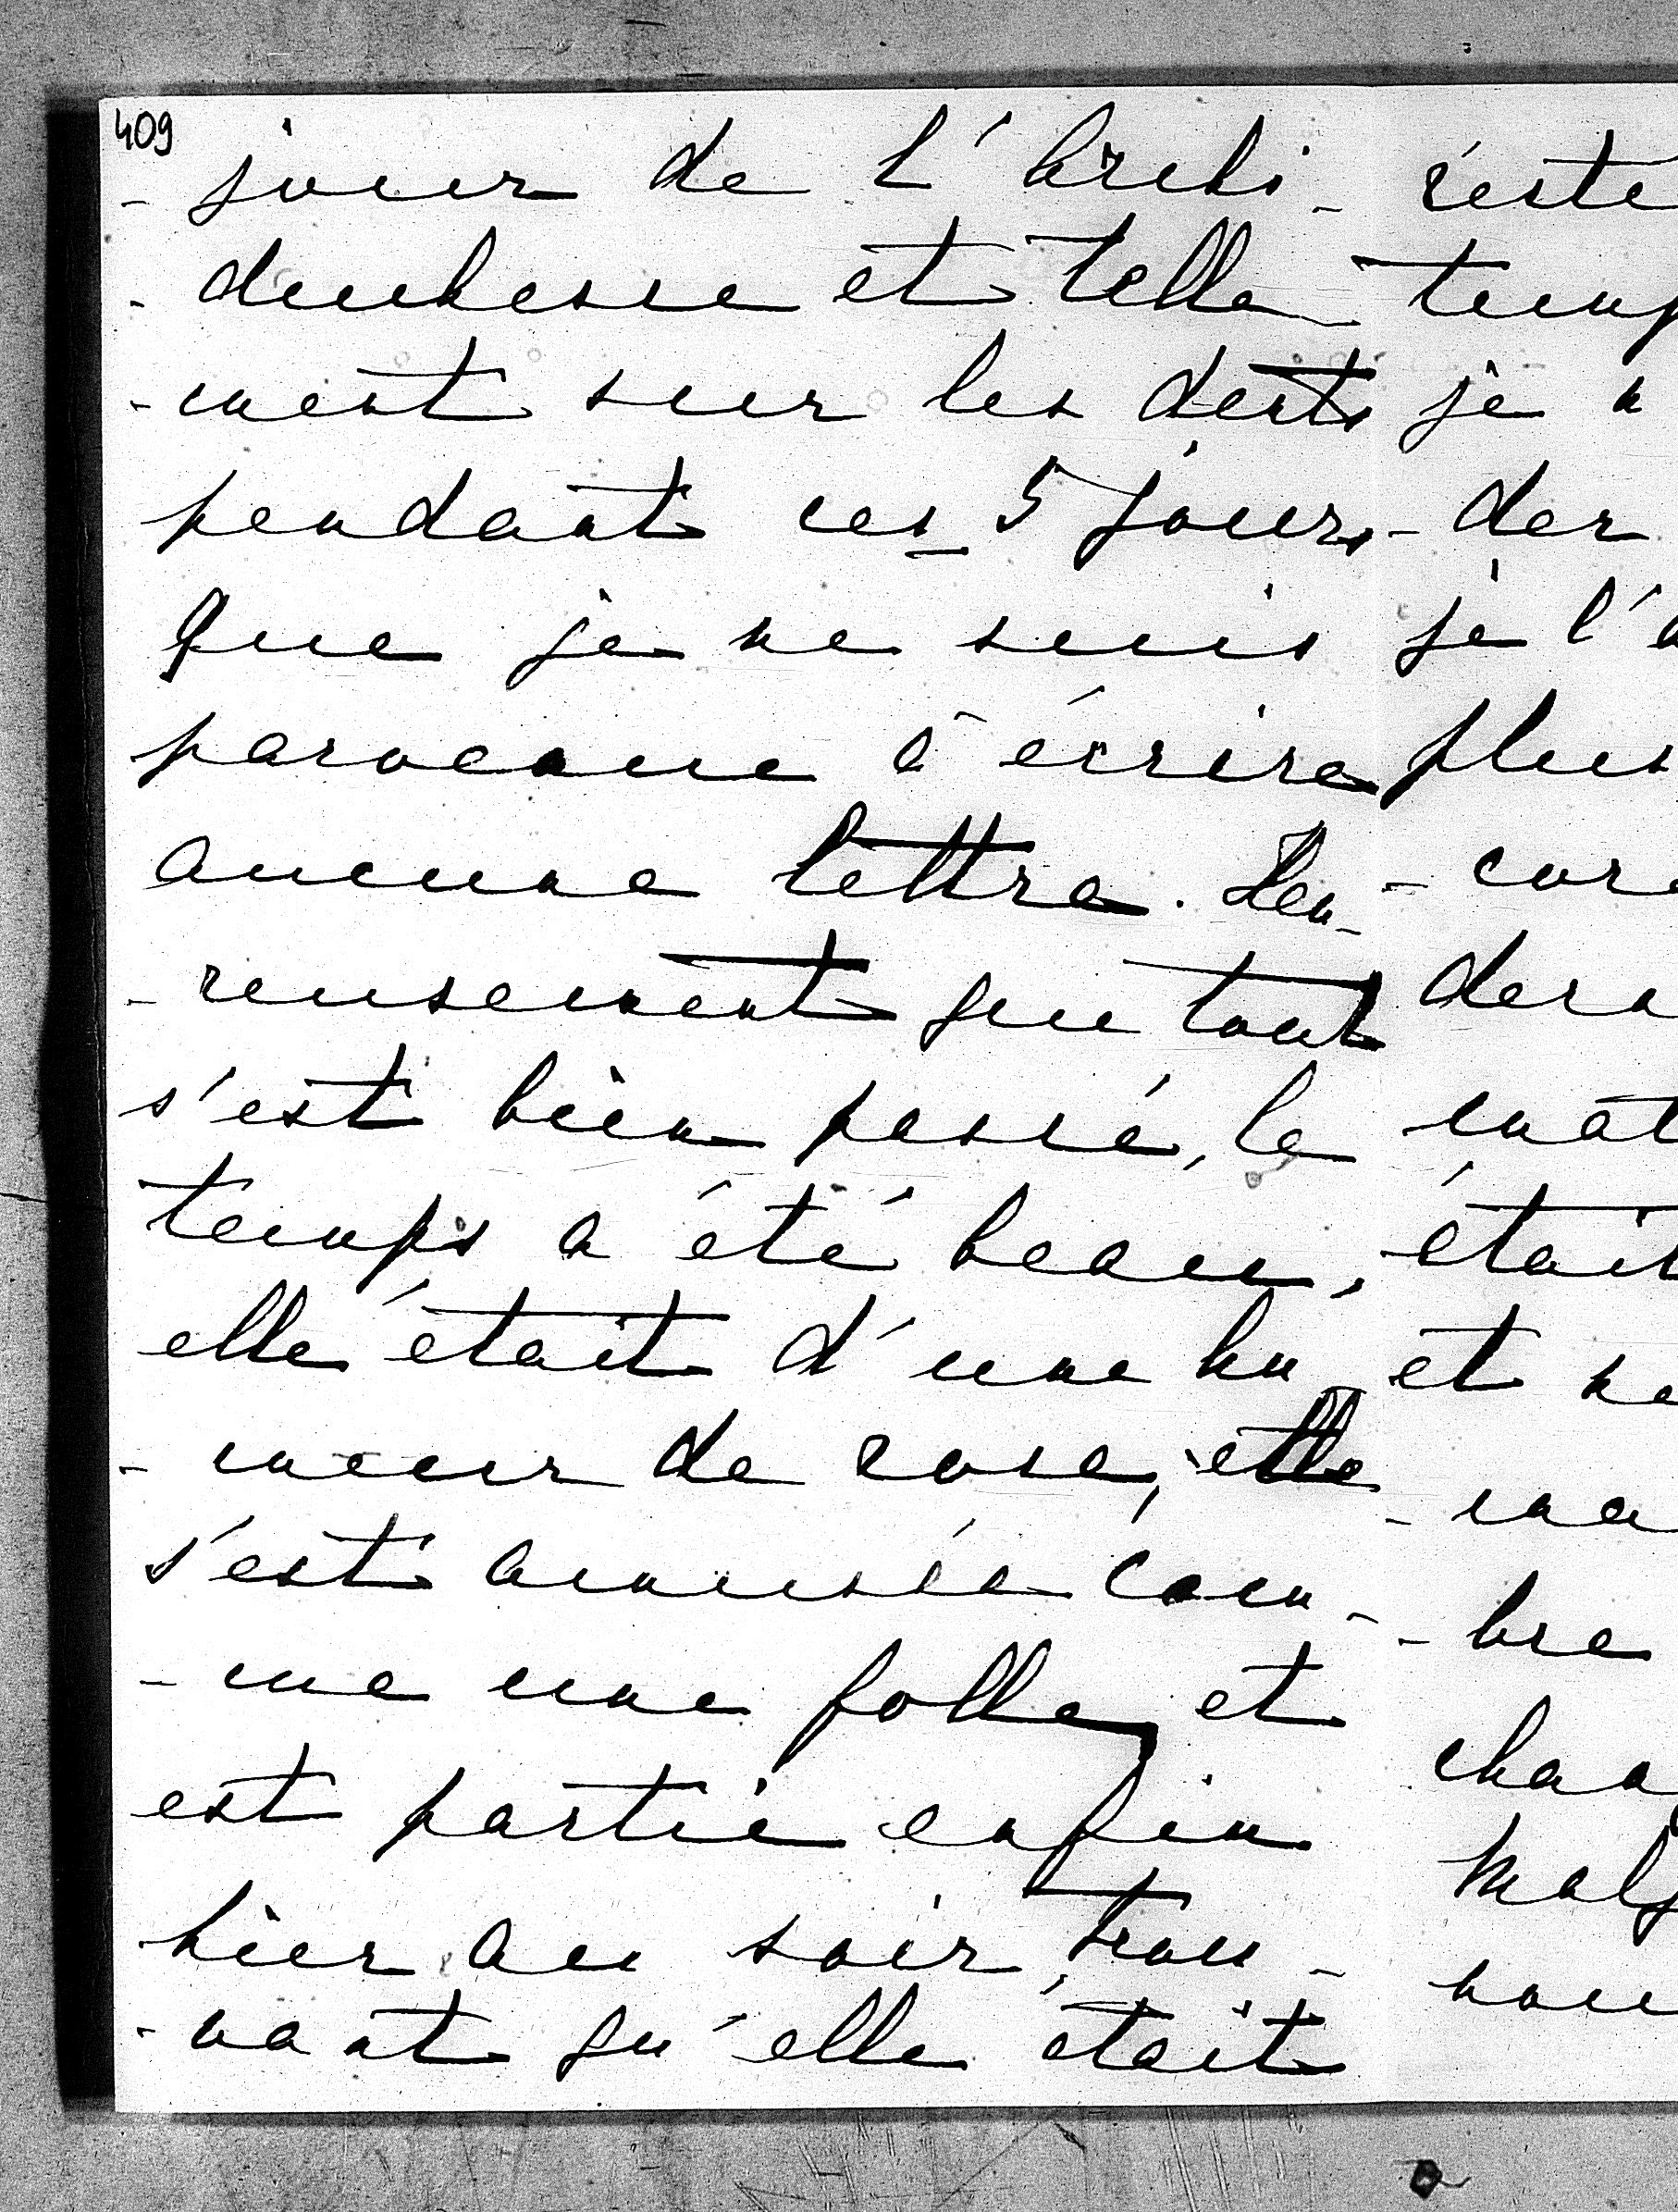 409
- jour de l'Archi -
- duchesse et telle -
- ment sur les dents
pendant ces 5 jours
que je ne suis
parvenue à écrire
aucune lettre. Heu -
- reusement que tout
s'est bien passé, le
temps a été beau,
elle était d'une hu -
- meur de rose, elle
s'est amusée com -
- me une folle, et
est partie enfin
hier au soir, trou -
- vant qu'elle était
reste
temp
je n
- der
je l'a
plus
- core
dern
mat
était
et ne
- ma
- bre
chan
Malg
nou